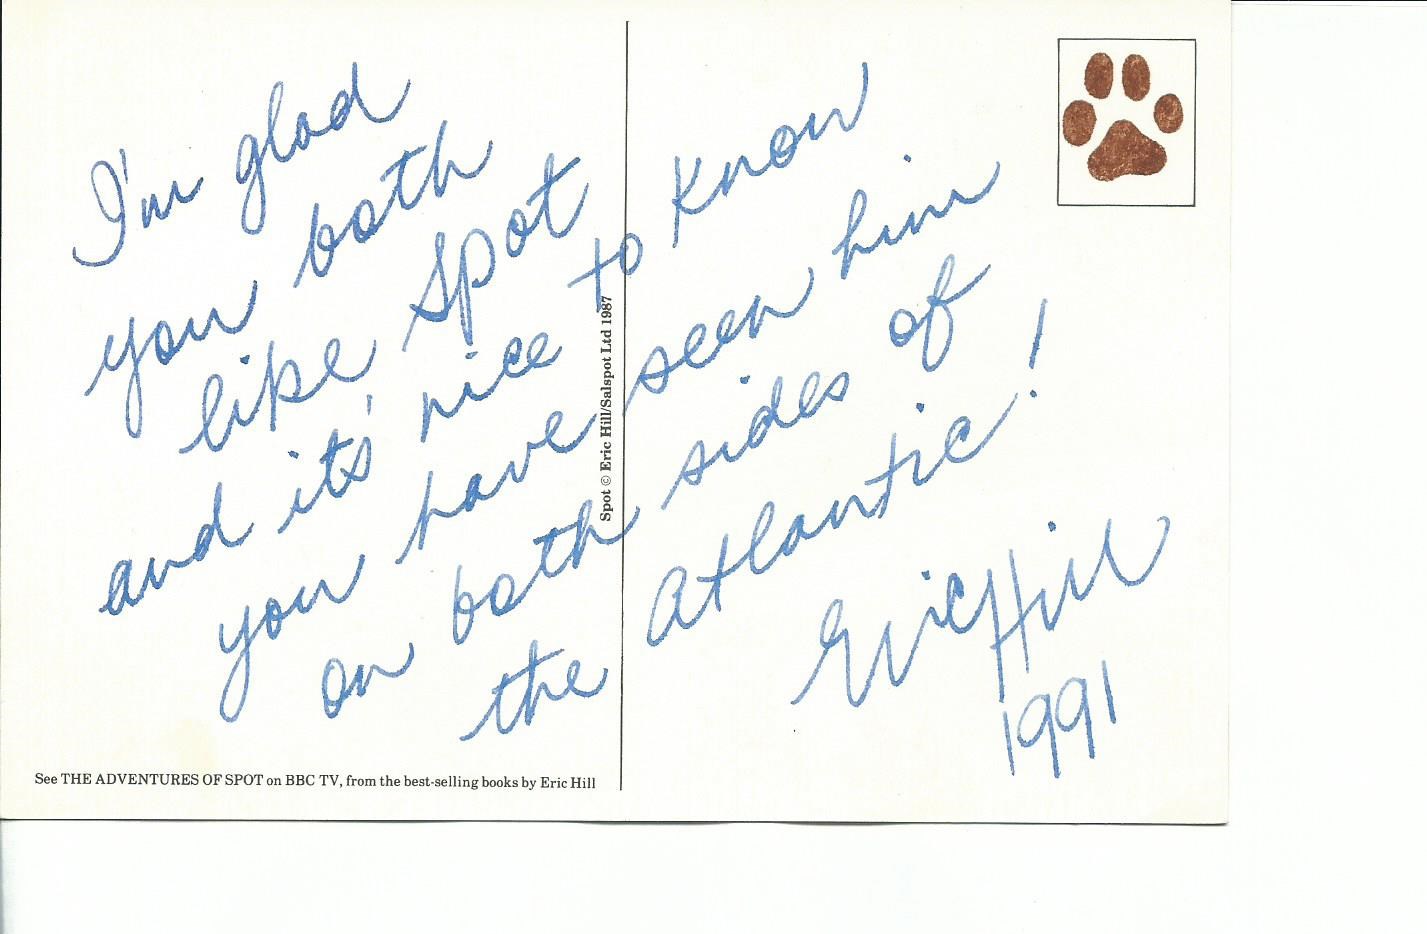 I'm glad
you both
like Spot
and it's nice to know
you have seen him
on both sides of
the Atlantic!
Eric Hill
1991
Spot © Eric Hill/Salspot Ltd 1987
See THE ADVENTURES OF SPOT on BBC TV, from the best-selling books by Eric Hill